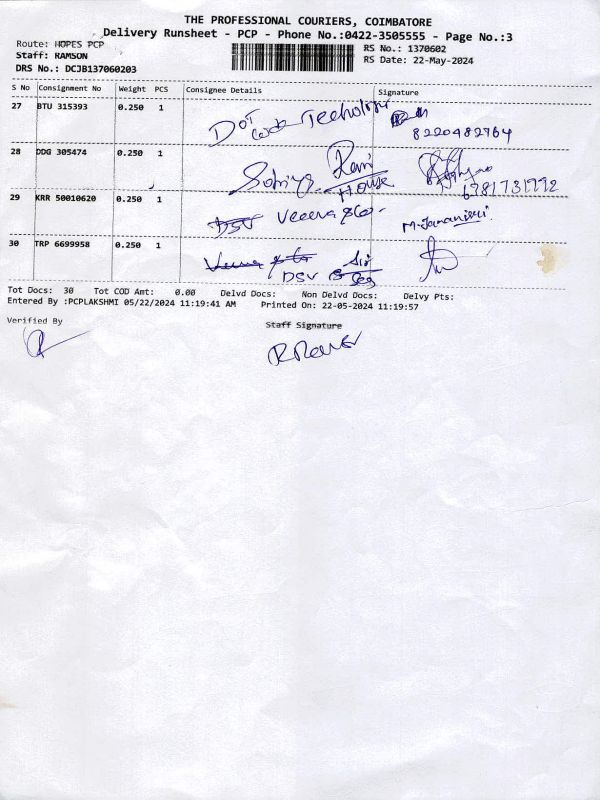 THE PROFESSIONAL COURIERS, COIMBATORE
Delivery Runsheet - PCP - Phone No.:0422-3505555 - Page No.:3
Route: HOPES PCP
RS No.: 1370602
Staff: RAMSON
RS Date: 22-May-2024
DRS No.: DCJB137060203
S No Consignment No Weight PCS Consignee Details Signature
27 BTU 315393 0.250 1 Dot
8220482764
28 DDG 305474 0.250 1 Rani
House
29 KRR 50010620 0.250 1 DSV Veeera
30 TRP 6699958 0.250 1
DSV
Tot Docs: 30 Tot COD Amt: 0.00 Delvd Docs: Non Delvd Docs: Delvy Pts:
Entered By :PCPLAKSHMI 05/22/2024 11:19:41 AM Printed On: 22-05-2024 11:19:57
Verified By
Staff Signature